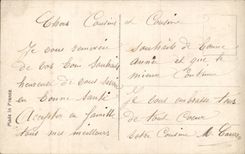 Chers Cousins et Cousine
Je vous remercie
de vos bons souhaits
heureuse de vous
en bonne santé
Acceptez en famille
tous mes meilleurs
souhaits de bonne
année et que le
mieux Continue
Je vous embrasse tous
de tout Coeur
votre Cousine M.
Made in France